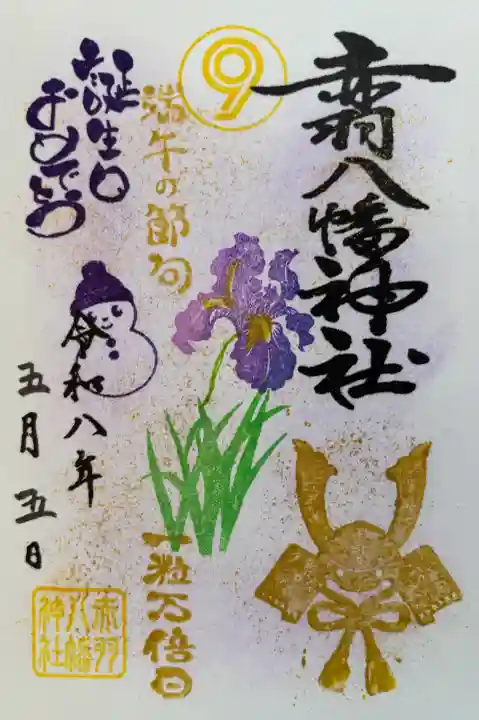 赤羽八幡神社
9
端午の節句
一粒万倍日
お誕生日
おめでとう
令和八年
五月五日
赤羽
八幡
神社